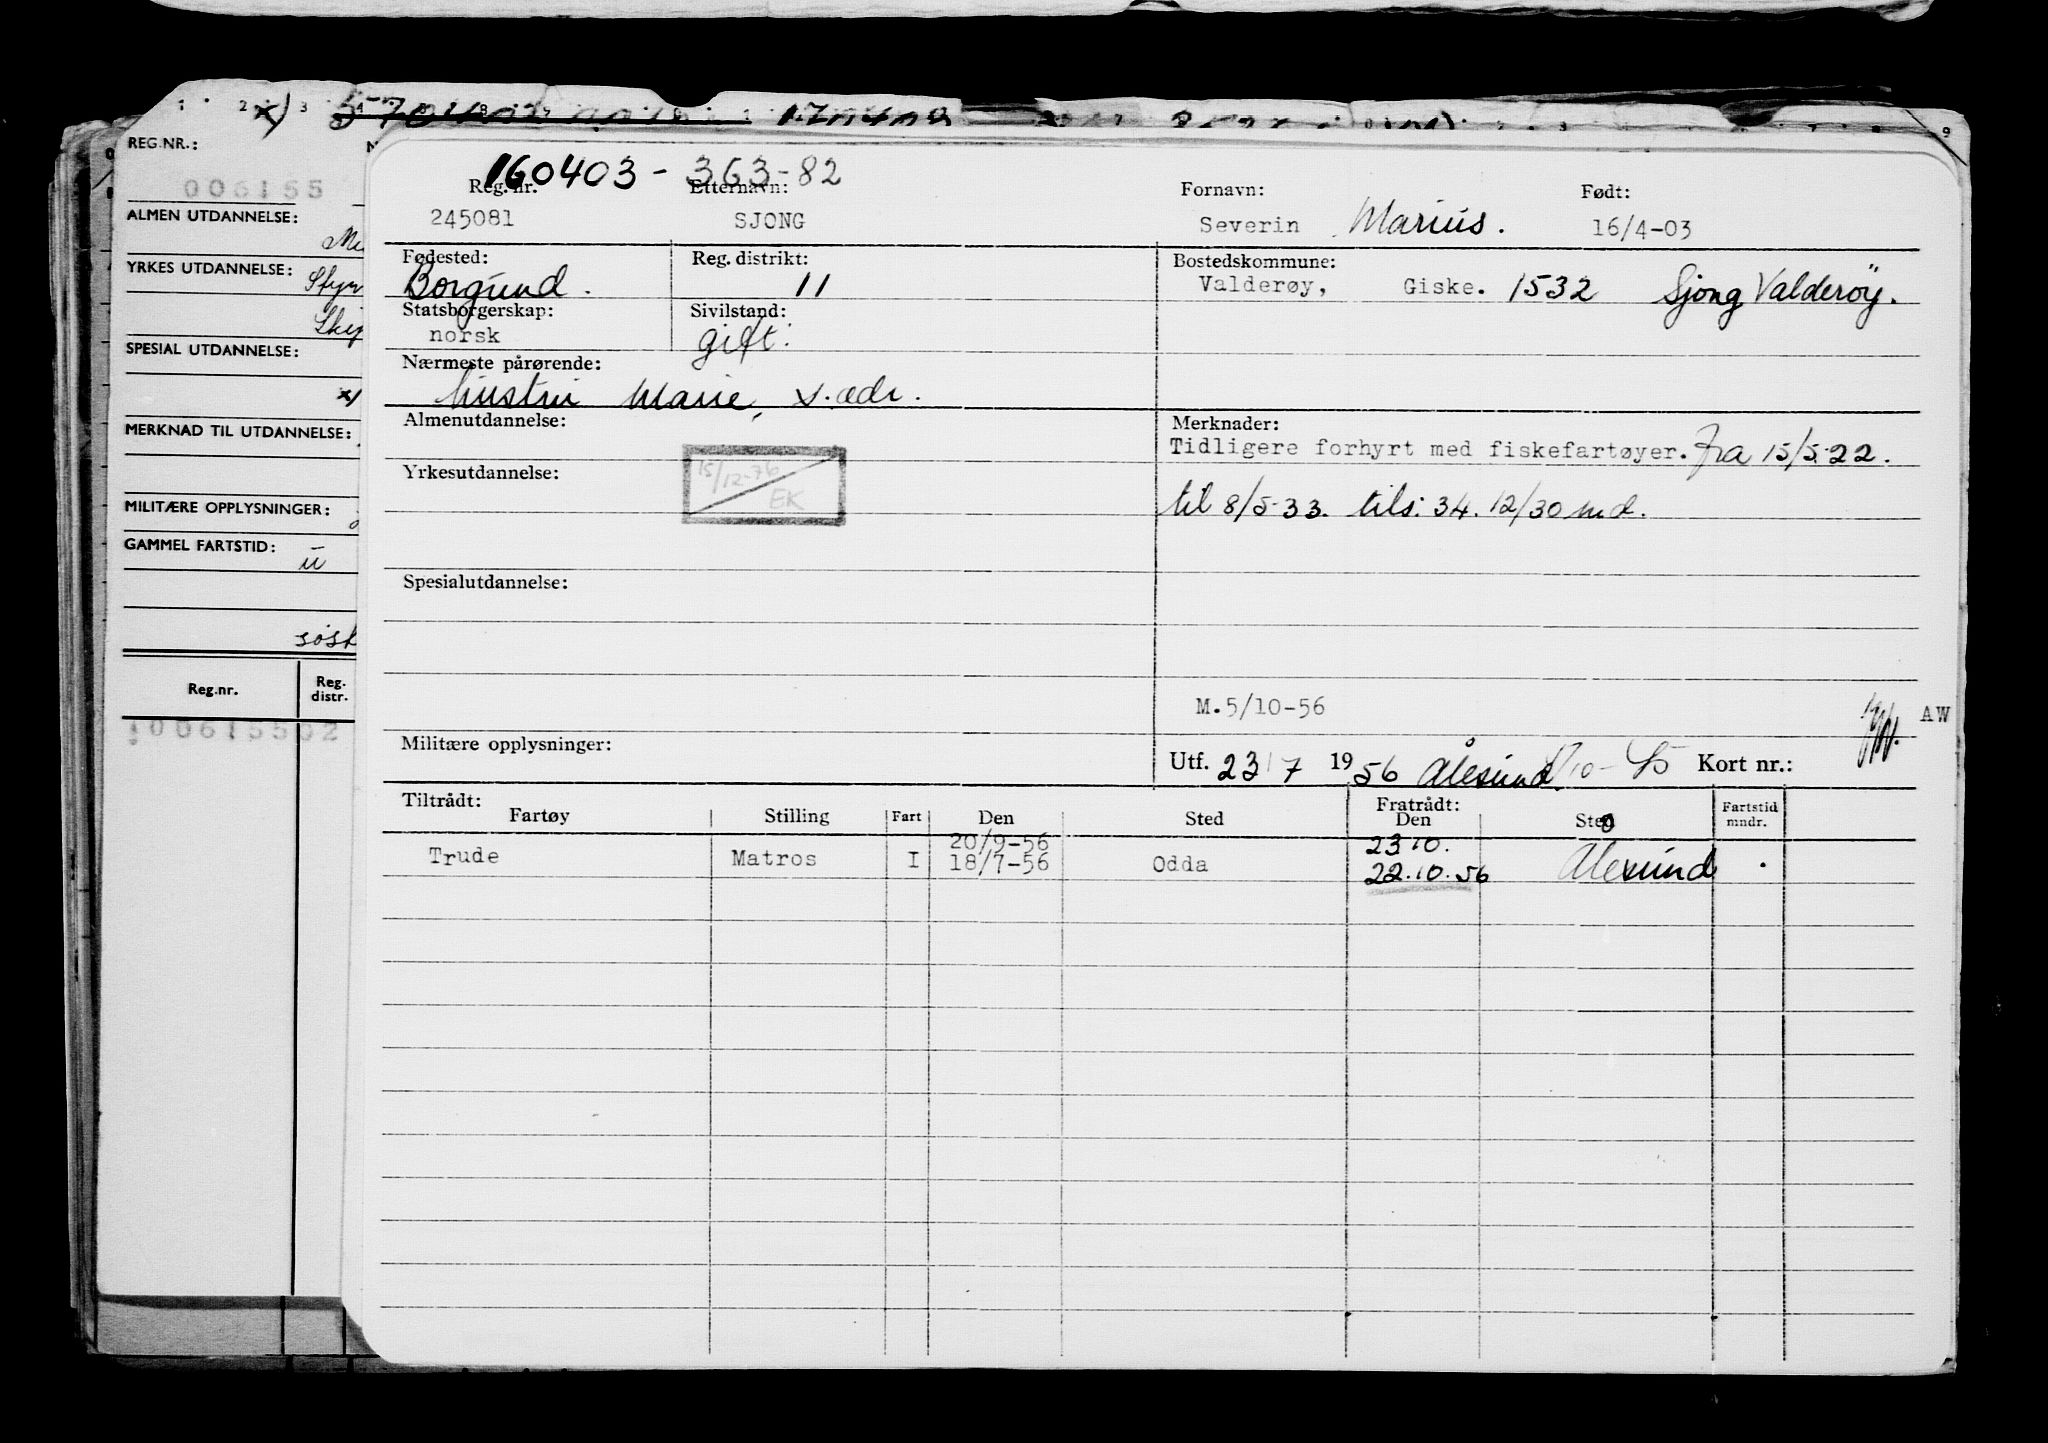 1 2 3 4
x)
REG.NR.:
006155
ALMEN UTDANNELSE:
YRKES UTDANNELSE:
SPESIAL UTDANNELSE:
x/
MERKNAD TIL UTDANNELSE:
MILITÆRE OPPLYSNINGER:
GAMMEL FARTSTID:
ü
Reg.nr.
Reg. distr.
100615502
160403 - 363-82
Reg. nr. Etternavn: Fornavn: Født:
245081 SJONG Severin Marius. 16/4-03
Fødested: Reg. distrikt: Bostedskommune:
Borgund. 11 Valderøy, Giske. 1532 Sjong Valderøy.
Statsborgerskap: Sivilstand:
norsk gift.
Nærmeste pårørende:
hustru Marie, s. adr.
Almenutdannelse: Merknader:
Tidligere forhyrt med fiskefartøyer. fra 15/5-22.
Yrkesutdannelse: 15/12-76 EK
til 8/5-33. tils. 34. 12/30 md.
Spesialutdannelse:
M.5/10-56
AW
Militære opplysninger: Utf. 23/7 1956 Ålesund Kort nr.:
Tiltrådt: Fratrådt: Fartstid
Fartøy Stilling Fart Den Sted Den Sted mndr.
20/9-56 23 10.
Trude Matros I 18/7-56 Odda 22.10.56 Ålesund